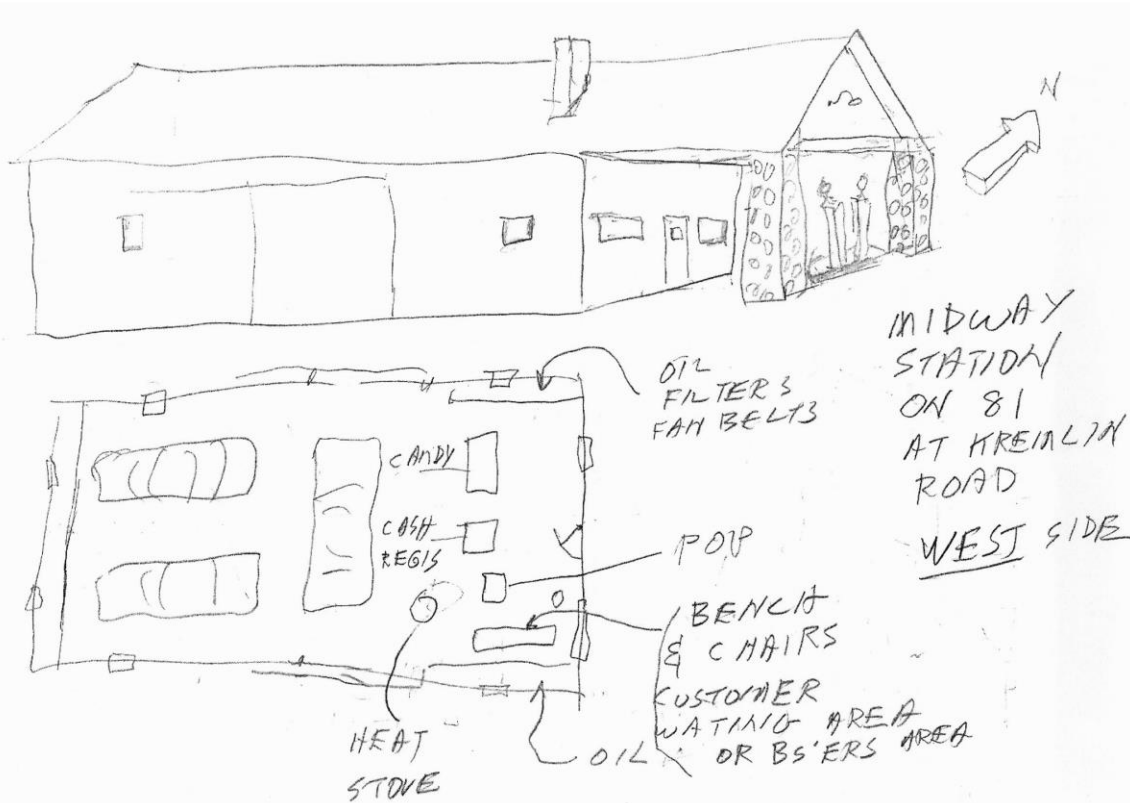 N
MIDWAY
STATION
ON 81
AT KREMLIN
ROAD
WEST SIDE
OIL
FILTERS
FAN BELTS
CANDY
CASH
REGIS
POP
BENCH
& CHAIRS
CUSTOMER
WATING AREA
OR BS'ERS AREA
OIL
HEAT
STOVE